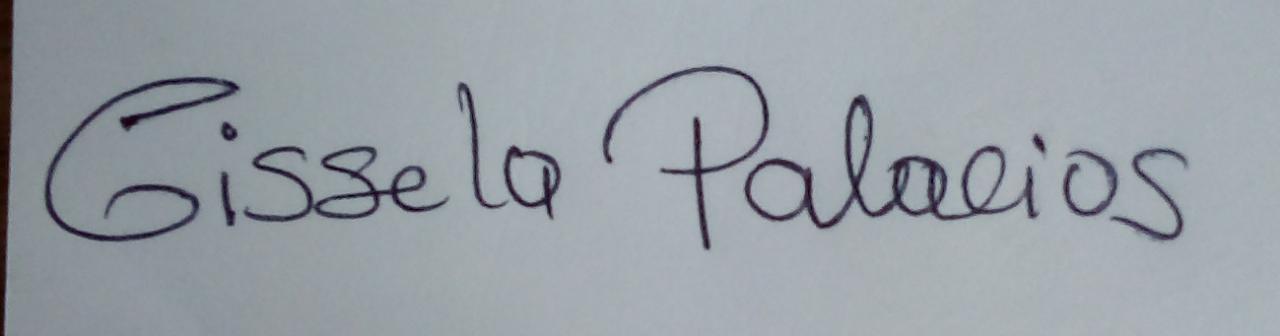 Gissela Palacios